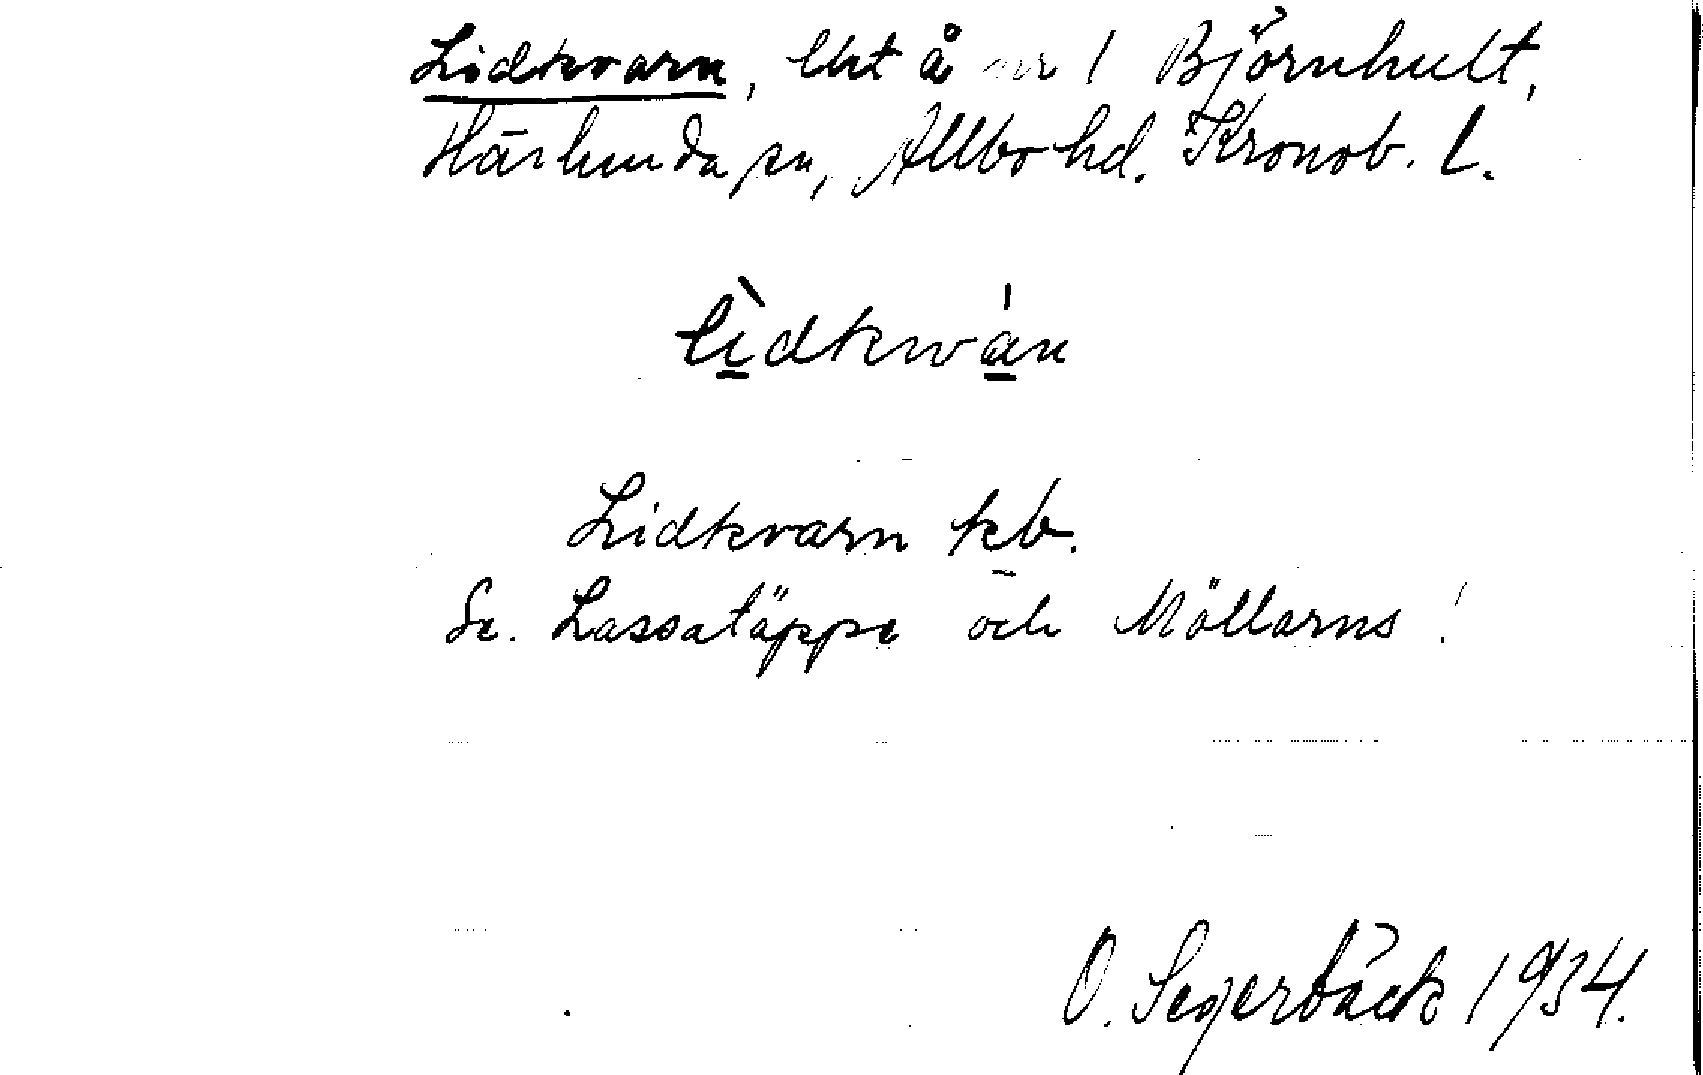 Lidkvarn, lht å nr 1 Björnhult,
Härlunda sn, Allbo hd. Kronob. l.
lìdkwán
Lidkvarn kb.
Se. Lassatäppe och Möllarns!
O. Segerbäck 1934.